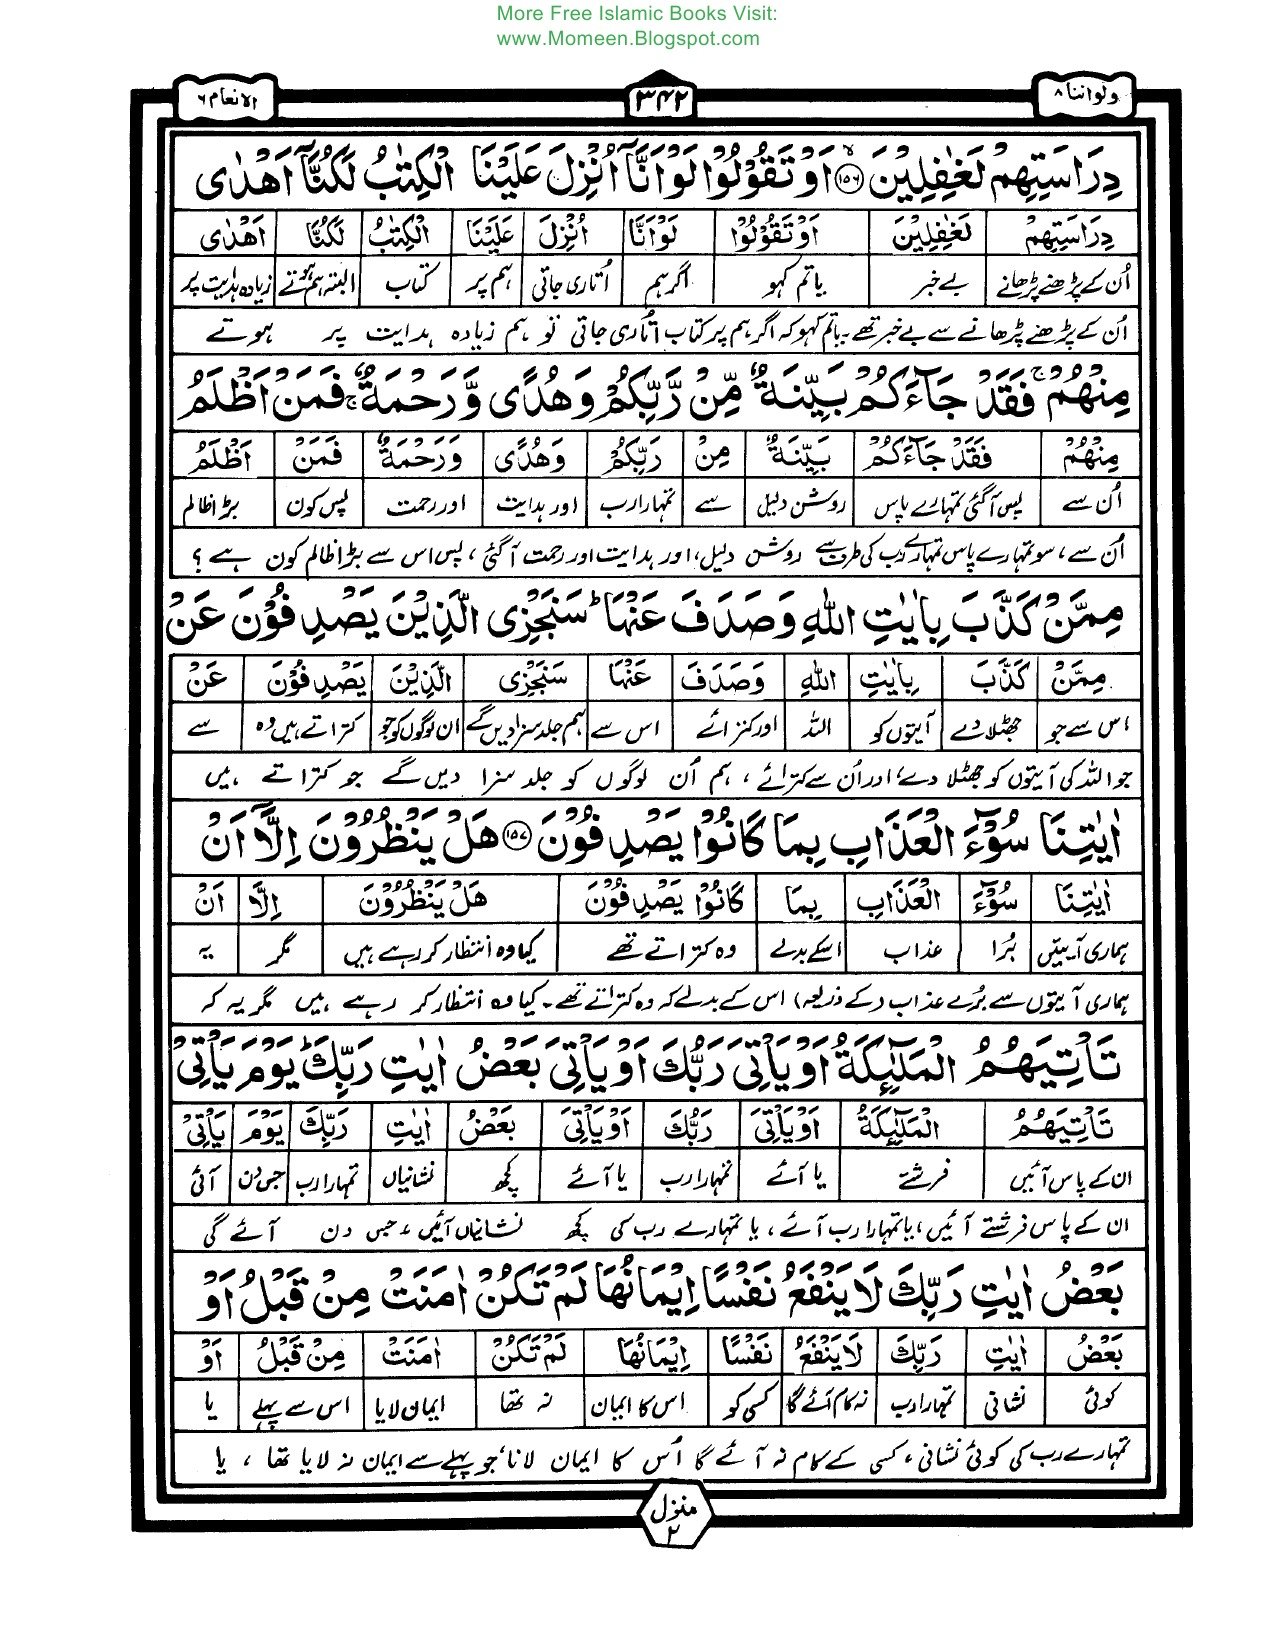 More Free Islamic Books Visit:
www.Momeen.Blogspot.com
ولواننا ٨ ٣٤٢ الانعام ٦
دِرَاسَتِهِمْ لَغٰفِلِيْنَ ۙ﴿١٥٦﴾ اَوْ تَقُوْلُوْا لَوْ اَنَّاۤ اُنْزِلَ عَلَيْنَا الْكِتٰبُ لَكُنَّاۤ اَهْدٰى
دِرَاسَتِهِمْ لَغٰفِلِيْنَ اَوْ تَقُوْلُوْا لَوْ اَنَّا اُنْزِلَ عَلَيْنَا الْكِتٰبُ لَكُنَّا اَهْدٰى
اُن کے پڑھنے پڑھانے بے خبر یا تم کہو اگر ہم اُتاری جاتی ہم پر کتاب البتہ ہم ہوتے زیادہ ہدایت پر
اُن کے پڑھنے پڑھانے سے بے خبر تھے۔ یا تم کہو کہ اگر ہم پر کتاب اُتاری جاتی تو ہم زیادہ ہدایت پر ہوتے
مِنْهُمْ ۚ فَقَدْ جَآءَكُمْ بَيِّنَةٌ مِّنْ رَّبِّكُمْ وَهُدًى وَّرَحْمَةٌ ۚ فَمَنْ اَظْلَمُ
مِنْهُمْ فَقَدْ جَآءَكُمْ بَيِّنَةٌ مِنْ رَبِّكُمْ وَهُدًى وَرَحْمَةٌ فَمَنْ اَظْلَمُ
اُن سے پس آگئی تمہارے پاس روشن دلیل سے تمہارا رب اور ہدایت اور رحمت پس کون بڑا ظالم
اُن سے، سو تمہارے پاس تمہارے رب کی طرف سے روشن دلیل، اور ہدایت اور رحمت آگئی، پس اس سے بڑا ظالم کون ہے؟
مِمَّنْ كَذَّبَ بِاٰيٰتِ اللّٰهِ وَصَدَفَ عَنْهَا ؕ سَنَجْزِى الَّذِيْنَ يَصْدِفُوْنَ عَنْ
مِمَّنْ كَذَّبَ بِاٰيٰتِ اللّٰهِ وَصَدَفَ عَنْهَا سَنَجْزِى الَّذِيْنَ يَصْدِفُوْنَ عَنْ
اس سے جو جھٹلا دے آیتوں کو اللہ اور کترائے اس سے ہم جلد سزا دیں گے ان لوگوں کو جو کتراتے ہیں وہ سے
جو اللہ کی آیتوں کو جھٹلا دے، اور اُن سے کترائے، ہم اُن لوگوں کو جلد سزا دیں گے جو کتراتے ہیں
اٰيٰتِنَا سُوْٓءَ الْعَذَابِ بِمَا كَانُوْا يَصْدِفُوْنَ ﴿١٥٧﴾ هَلْ يَنْظُرُوْنَ اِلَّاۤ اَنْ
اٰيٰتِنَا سُوْٓءَ الْعَذَابِ بِمَا كَانُوْا يَصْدِفُوْنَ هَلْ يَنْظُرُوْنَ اِلَّا اَنْ
ہماری آیتیں بُرا عذاب اسکے بدلے وہ کتراتے تھے کیا وہ انتظار کر رہے ہیں مگر یہ
ہماری آیتوں سے بُرے عذاب (کے ذریعہ) اس کے بدلے کہ وہ کتراتے تھے۔ کیا وہ انتظار کر رہے ہیں مگر یہ کہ
تَاْتِيَهُمُ الْمَلٰٓئِكَةُ اَوْ يَاْتِىَ رَبُّكَ اَوْ يَاْتِىَ بَعْضُ اٰيٰتِ رَبِّكَ ؕ يَوْمَ يَاْتِىْ
تَاْتِيَهُمُ الْمَلٰٓئِكَةُ اَوْ يَاْتِىَ رَبُّكَ اَوْ يَاْتِىَ بَعْضُ اٰيٰتِ رَبِّكَ يَوْمَ يَاْتِىْ
ان کے پاس آئیں فرشتے یا آئے تمہارا رب یا آئے کچھ نشانیاں تمہارا رب جس دن آئی
ان کے پاس فرشتے آئیں، یا تمہارا رب آئے، یا تمہارے رب کی کچھ نشانیاں آئیں، جس دن آئے گی
بَعْضُ اٰيٰتِ رَبِّكَ لَا يَنْفَعُ نَفْسًا اِيْمَانُهَا لَمْ تَكُنْ اٰمَنَتْ مِنْ قَبْلُ اَوْ
بَعْضُ اٰيٰتِ رَبِّكَ لَا يَنْفَعُ نَفْسًا اِيْمَانُهَا لَمْ تَكُنْ اٰمَنَتْ مِنْ قَبْلُ اَوْ
کوئی نشانی تمہارا رب نہ کام آئے گا کسی کو اس کا ایمان نہ تھا ایمان لایا اس سے پہلے یا
تمہارے رب کی کوئی نشانی، کسی کے کام نہ آئے گا اُس کا ایمان لانا، جو پہلے سے ایمان نہ لایا تھا، یا
منزل ٢